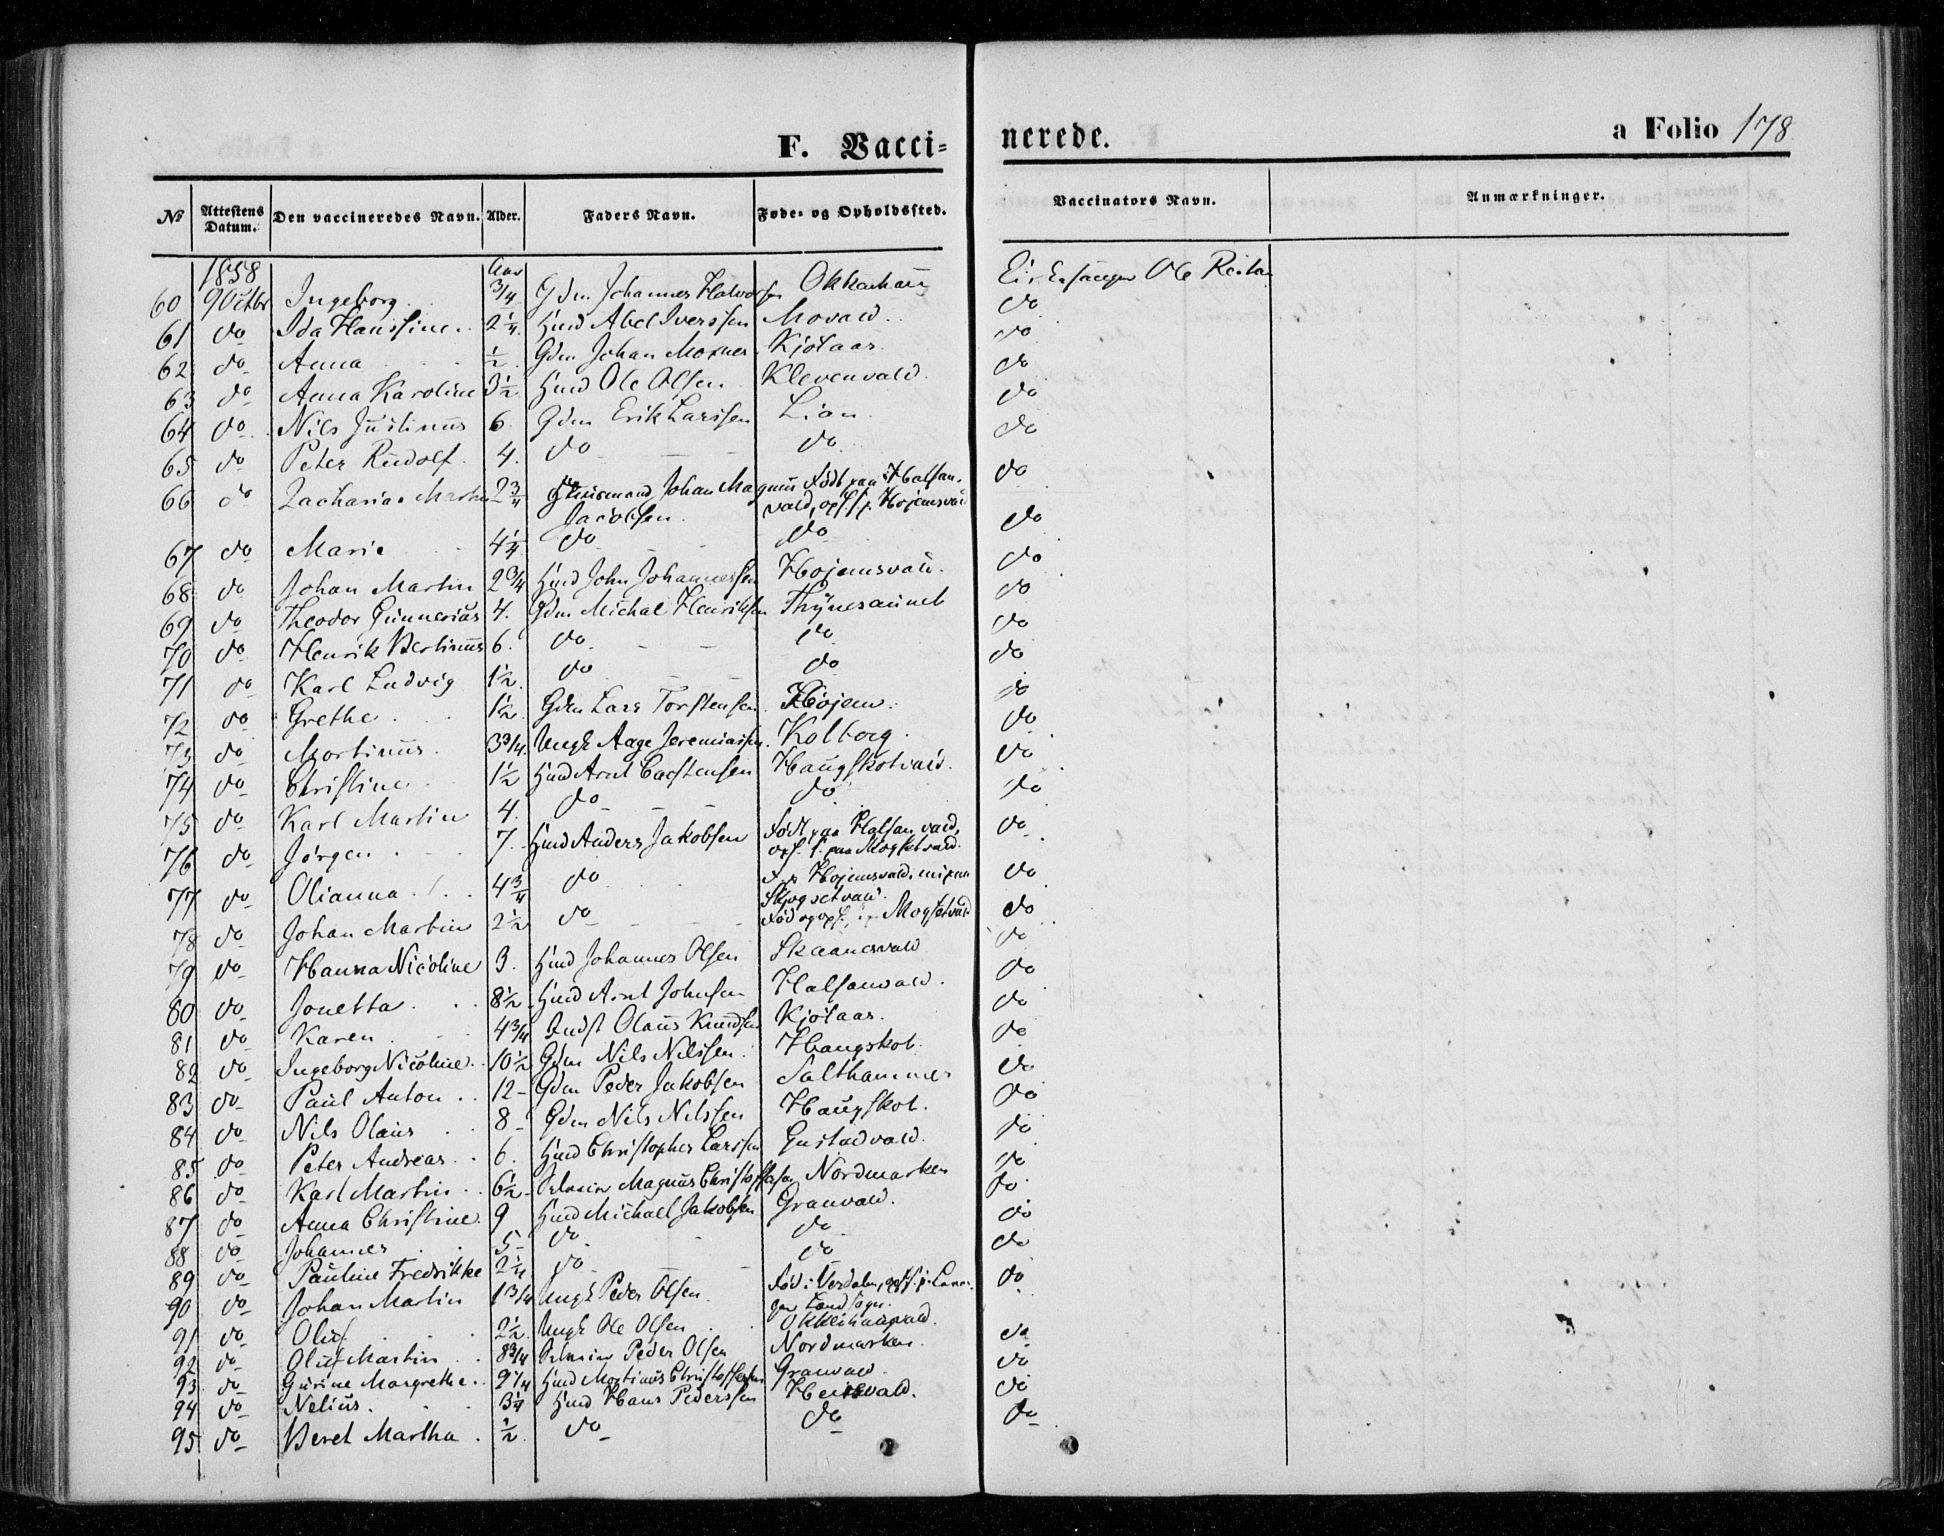 F. Vacci=
nerede.
a Folio 178.
№ Attestens Datum. Den vaccineredes Navn. Alder. Faders Navn. Føde= og Opholdssted. Vaccinators Navn. Anmærkninger.
1858 Aar
60 9 Octbr Ingeborg. 3/4 Gdm Johannes Halvorsen Okkenhaug Ole
61 do Ida Hansine. 2 1/4. Husmd Abel Iverssen Movald. do
62 do Anna 1/2. Gdm Johan Moxnes Kjølaas. do
63 do Anna Karoline 3 1/2 Husmd Ole Olsen Klevenvald. do
64 do Nils Justinus 6. Gdm Erik Larssen Lian. do
65 do Peter Rudolf. 4. do do do
66 do Zacharias Martin 2 3/4 Husmand Johan Magnus Født paa Halsan-
Jacobsen. vald, opf. p. Højemsvald do
67 do Marie 4 1/4 do do do
68 do Johan Martin 2 3/4 Husmd John Johannessen Højemsvald. do
69 do Theodor Gunnerius 4. Gdm Michal Henriksen Thynesaunet do
70 do Henrik Bertinus 6. do do do
71 do Karl Ludvig 1 1/2. do do do
72 do Grethe. 1 1/2. Gdm Lars Torstensen. Højem. do
73 do Mortinus. 3 3/4. Ungk Aage Jeremiassen. Kolberg. do
74 do Christine. 1 1/2 Husmd Arnt Carstensen Haugskotvald. do
75 do Karl Martin 4. do do do
76 do Jørgen. 7. Husmd Anders Jakobsen Født paa Halsanvald,
opf. paa Mogsetvald. do
77 do Olianna. 4 3/4 do Højemsvald,
do
78 do Johan Martin 2 1/2 do Mogsetvald do
79 do Hanna Nicoline 3. Husmd Johannes Olsen Skaanesvald do
80 do Jonetta. 8 1/2 Husmd Arnt Johnsen Halsanvald. do
81 do Karen 4 3/4 Indst Olaus Knudsen Kjølaas. do
82 do Ingeborg Nicoline. 10 1/2 Gdm Nils Nilssen. Haugskot. do
83 do Paul Anton. 12 Gdm Peder Jakobsen Salthammer do
84 do Nils Olaus 8 Gdm Nils Nilssen Haugskot. do
85 do Peter Andreas. 6. Husmd Christopher Larssen Gustadvald. do
86 do Karl Martin. 6 1/2 Selveier Magnus Christoffersen Nordmarken do
87 do Anna Christine. 9 Husmd Michael Jakobsen Granvald. do
88 do Johannes 5 do do do
89 do Pauline Fredrikke 2 1/4 do do do
90 do Johan Martin 1 3/4 Ungk Peder Olsen. Fød i Verdalen, opf. i Levan-
ger Landsogn. do
91 do Oluf 2 1/2. Ungk Ole Olsen Okkenhaugvald. do
92 do Oluf Martin 8 3/4 Selveier Peder Olsen Nordmarken. do
93 do Gurine Margrethe. 9 1/4 Husmd Mortinus Christoffersen Granvald. do
94 do Nelius. 3 1/4 Husmd Hans Pederssen Heirsvald. do
95 do Beret Martha. 1/2 do do do